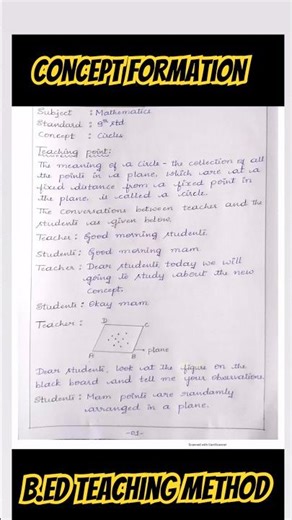 CONCEPT FORMATION
Subject : Mathematics
Standard : 9th std
Concept : Circles
Teaching point:
The meaning of a circle - the collection of all
the points in a plane, which are at a
fixed distance from a fixed point in
the plane, is called a circle.
The conversations between teacher and the
students as given below.
Teacher: Good morning students
Students: Good morning mam
Teacher: Dear students, today we will
going to study about the new
Concept.
Students: Okay mam
Teacher:
D C
A B
plane
Dear students, look at the figure on the
black board and tell me your observation
Students: Mam points are randamly
arranged in a plane.
-01-
Scanned with CamScanner
B.ED TEACHING METHOD